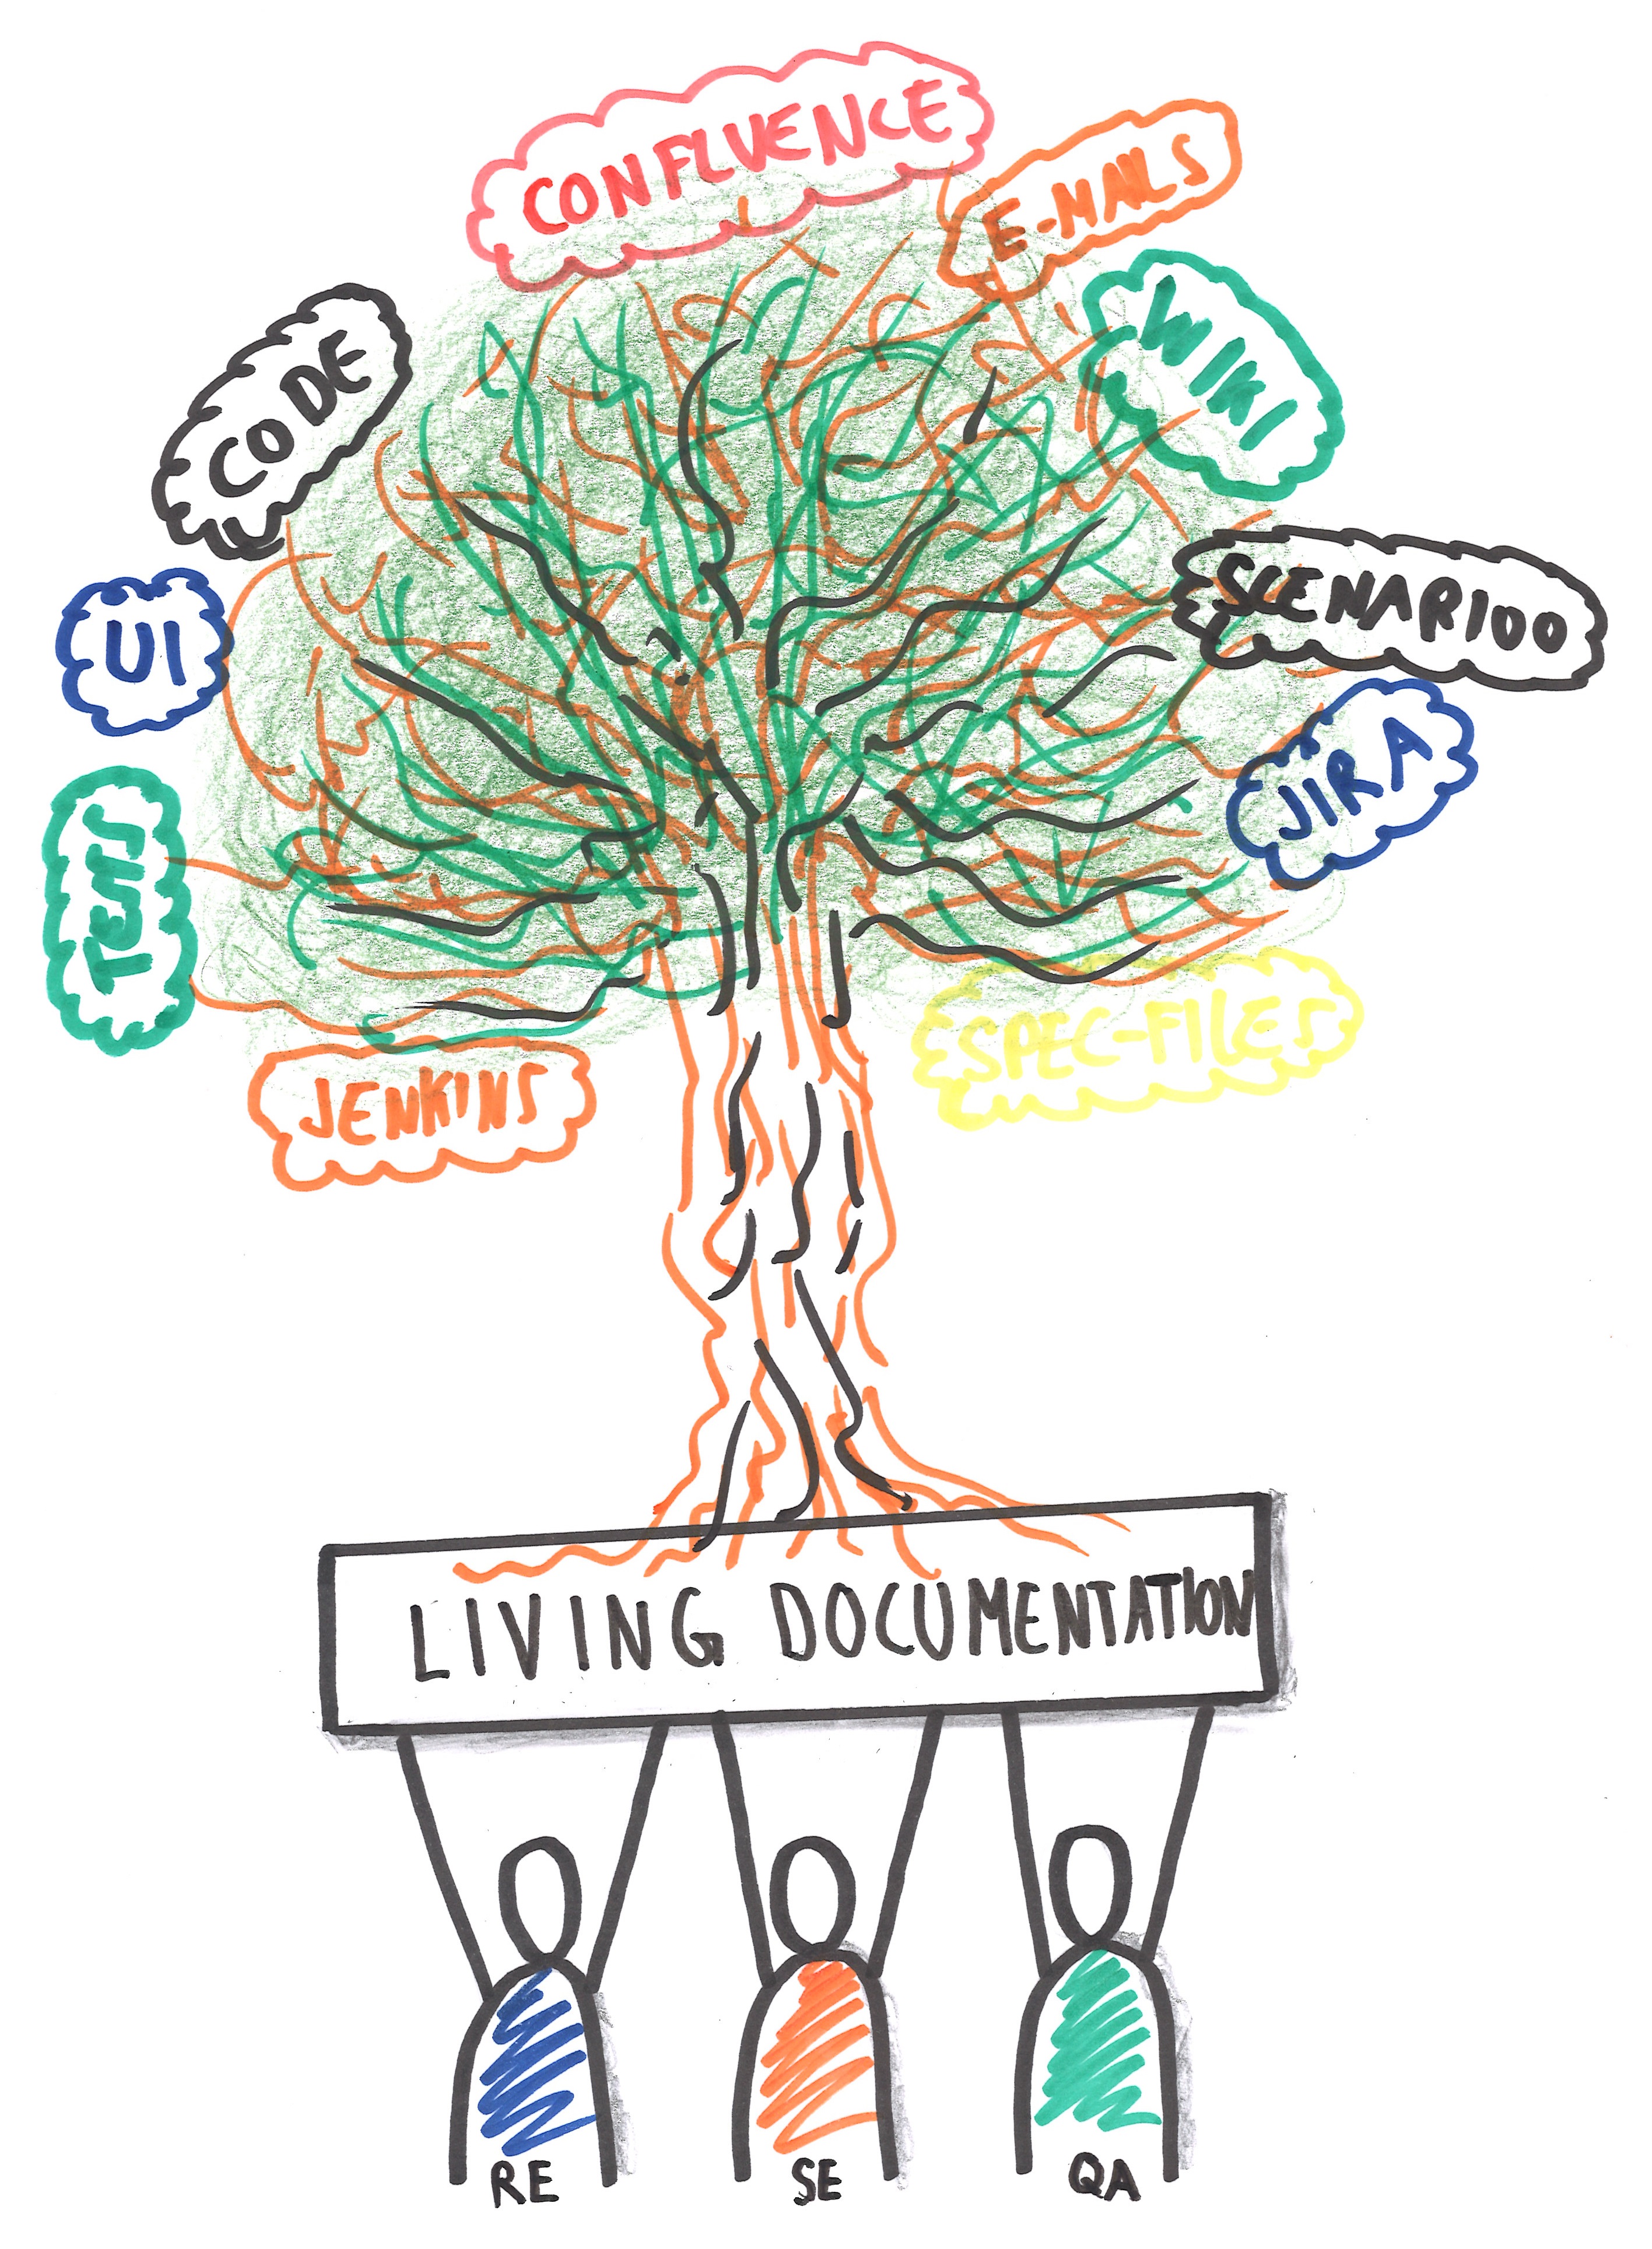 CONFLUENCE
E-MAILS
WIKI
CODE
SCENARIOO
UI
JIRA
TESTS
SPEC-FILES
JENKINS
LIVING DOCUMENTATION
RE
SE
QA